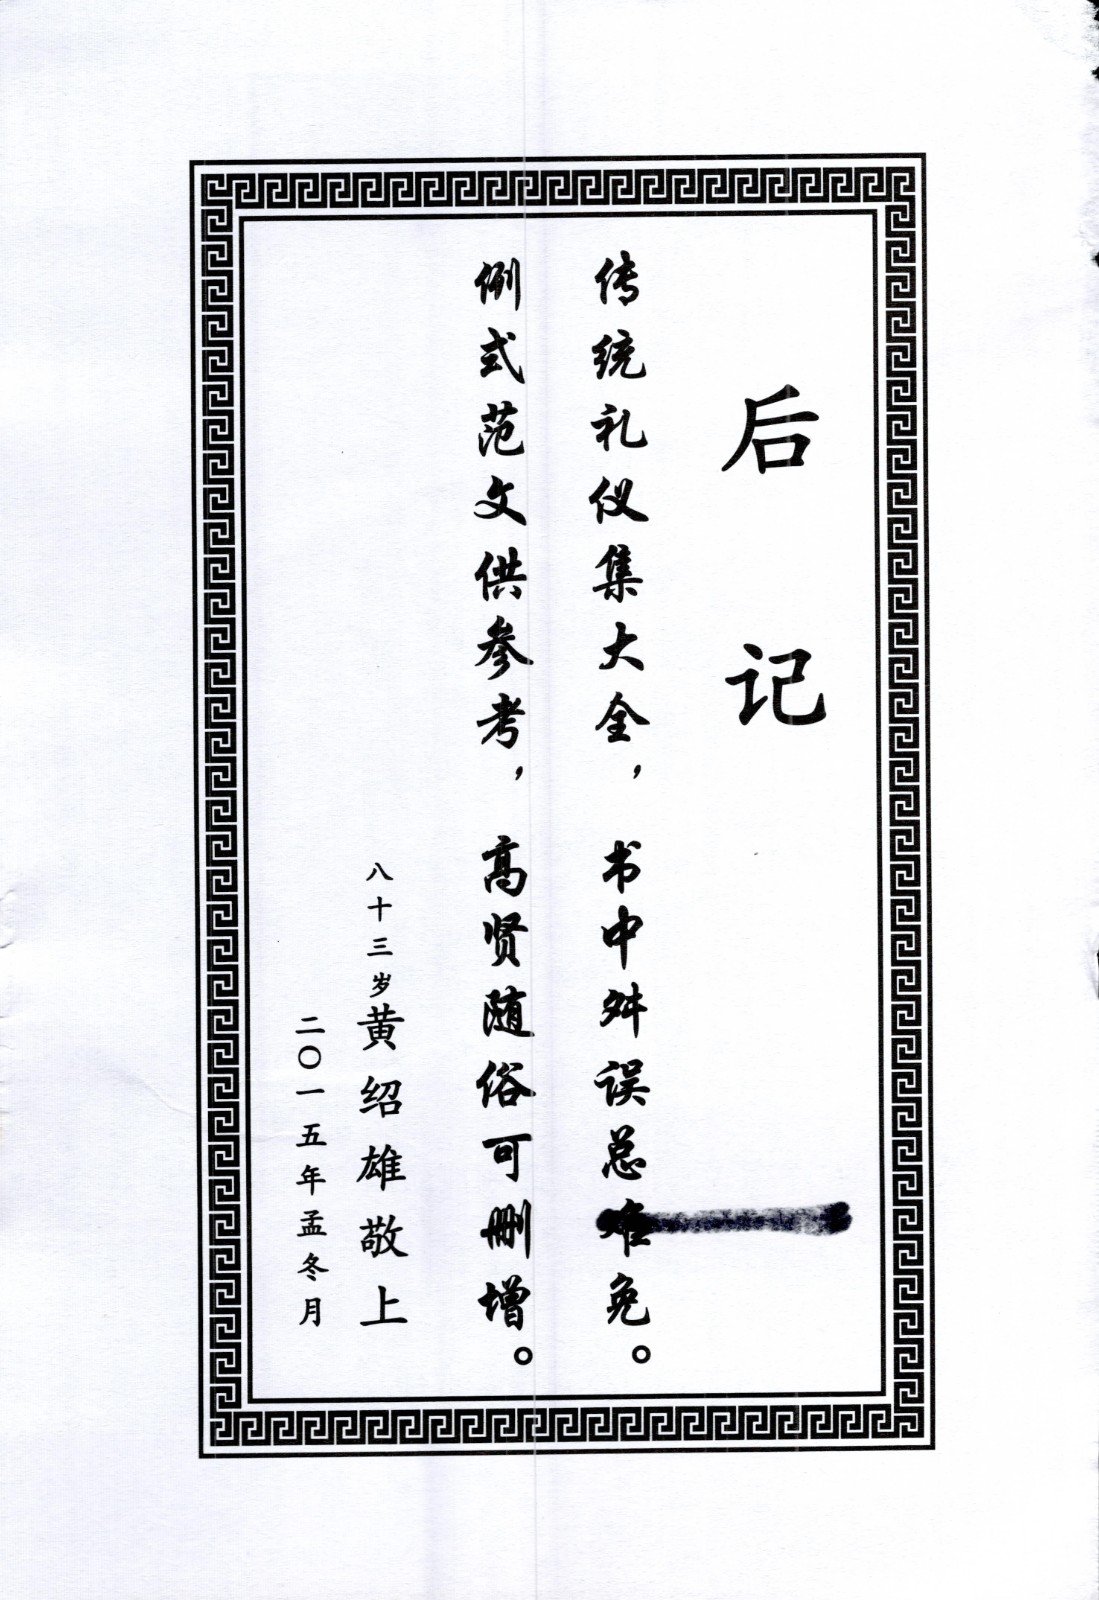 后记
传统礼仪集大全，书中舛误总难免。
例式范文供参考，高贤随俗可删增。
八十三岁黄绍雄敬上
二〇一五年孟冬月